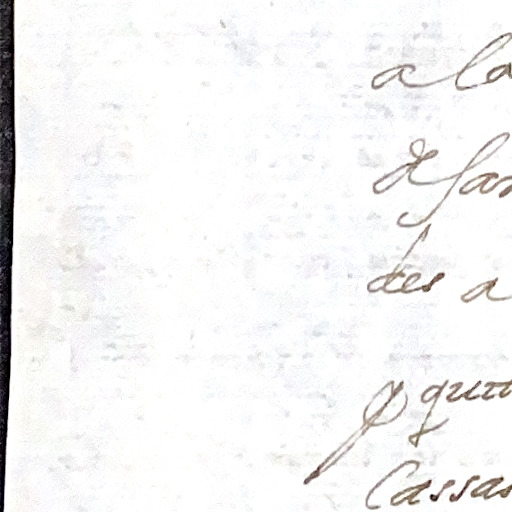 a la
de san
des a
p qui
Cassas